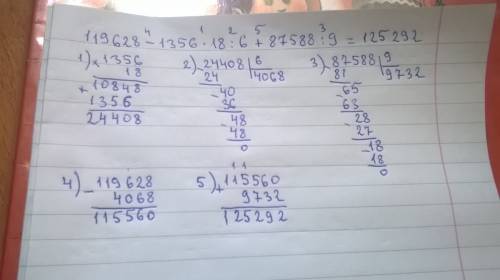 119628 - 1356 · 18 : 6 + 87588 : 9 = 125292
4 1 2 5 3
1) × 1356
18
+ 10848
1356
24408
2) - 24408 | 6
24 4068
- 40
36
- 48
48
0
3) - 87588 | 9
81 9732
- 65
63
- 28
27
- 18
18
0
4) - 119628
4068
115560
5) + 115560
1 1
9732
125292